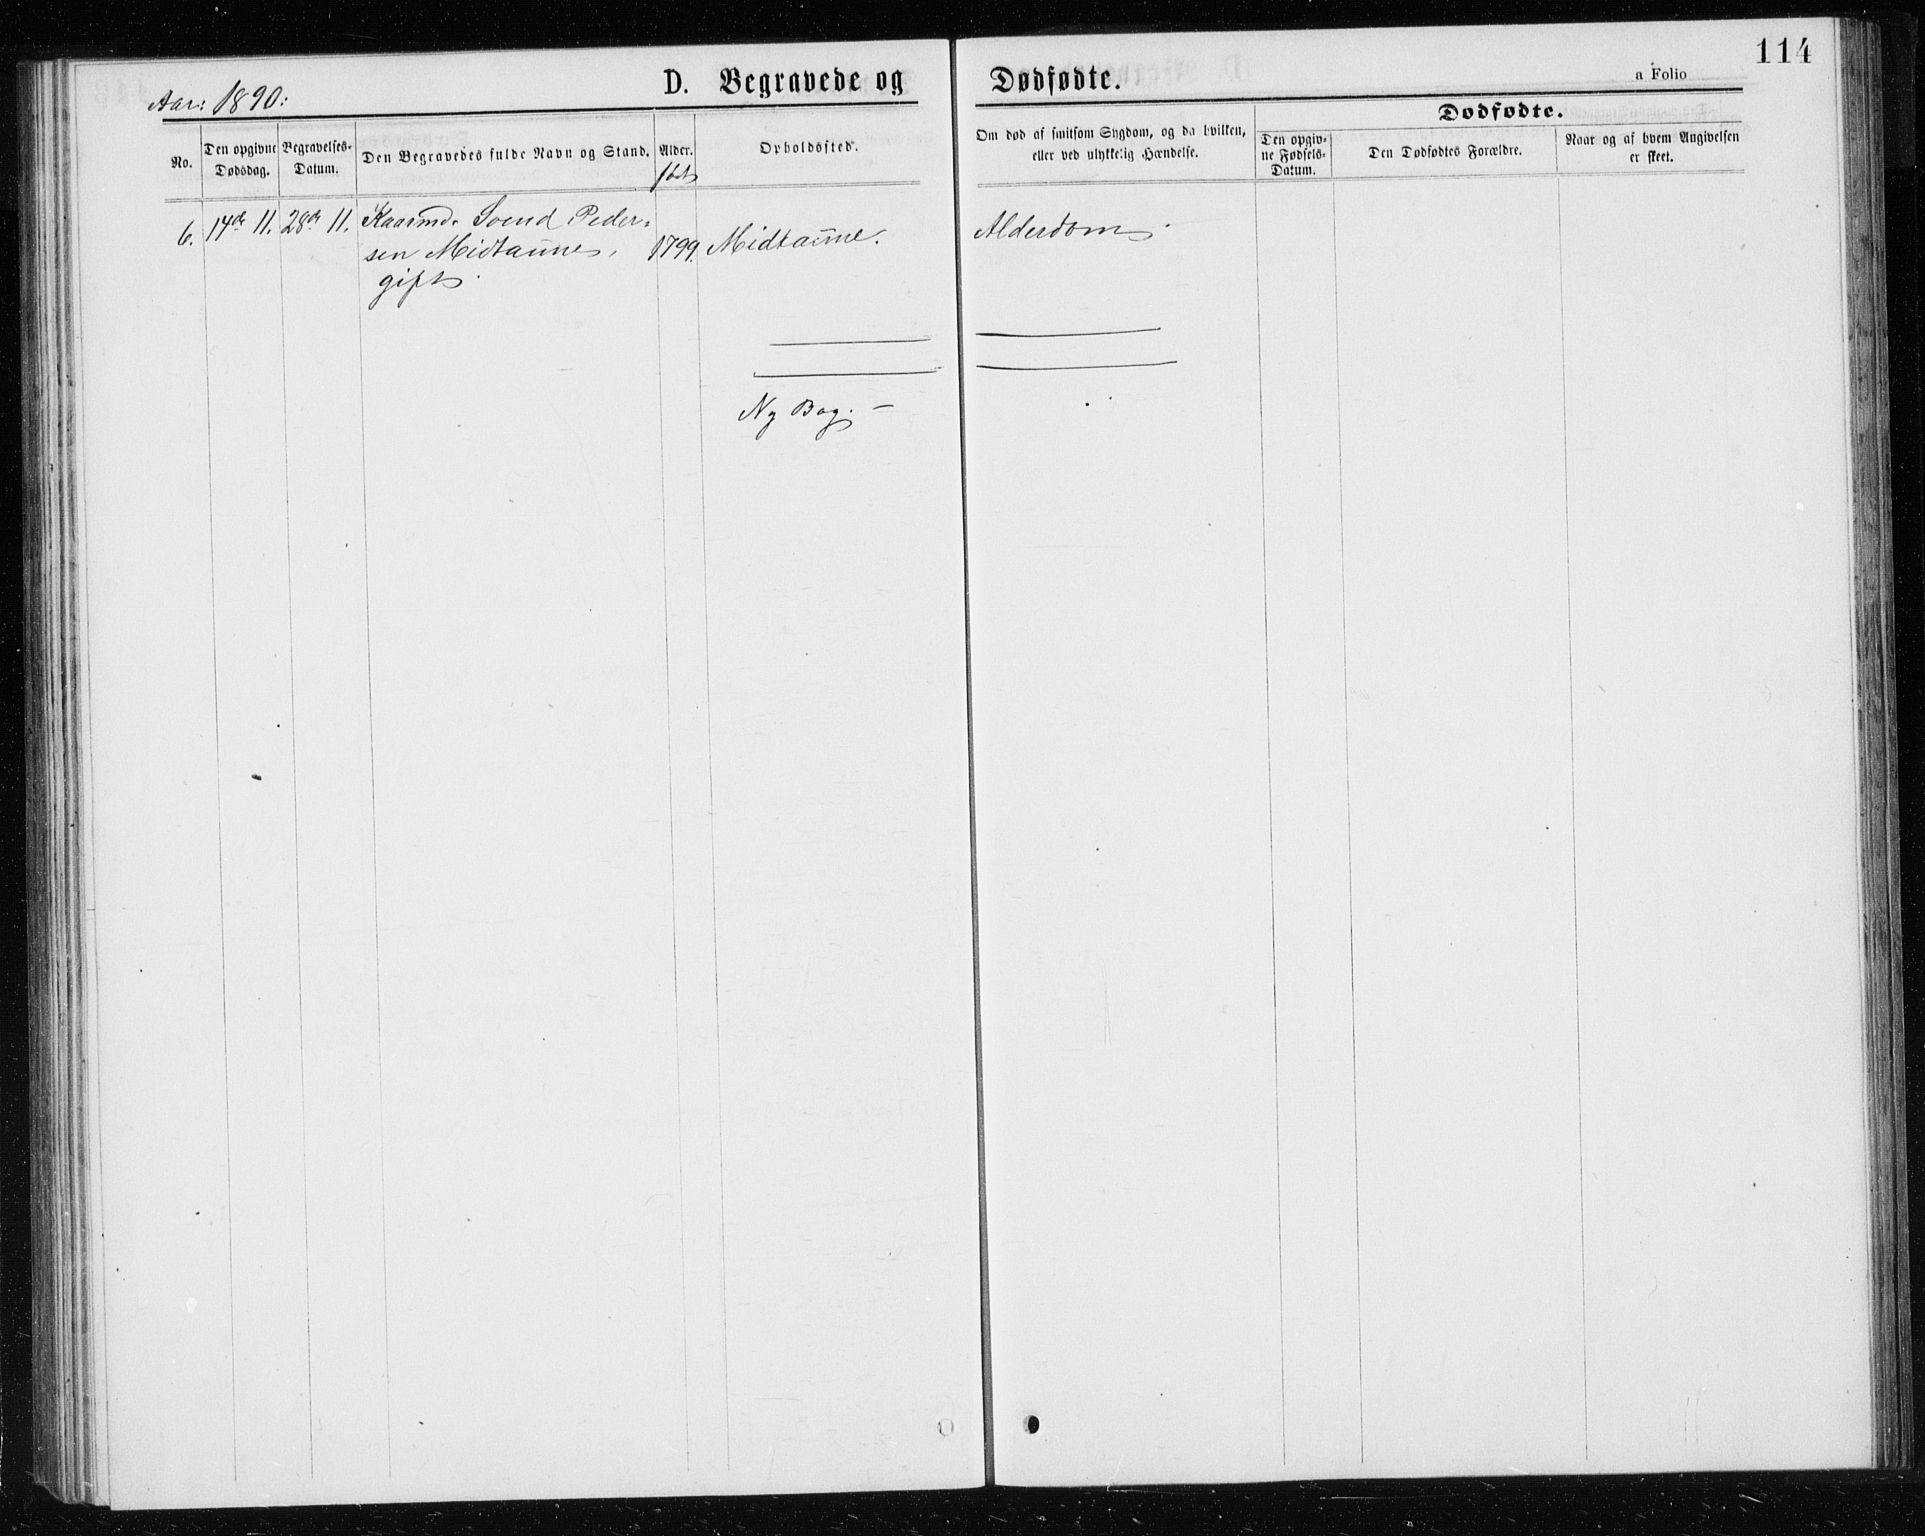 114
Aar: 1890:
D. Begravede og Dødfødte.
a Folio
No.
Den opgivne Dødsdag.
Begravelses-Datum.
Den Begravedes fulde Navn og Stand.
Alder.
født
Opholdssted.
Om død af smitsom Sygdom, og da hvilken,
eller ved ulykkelig Hændelse.
Dødfødte.
Den opgiv-
ne Fødsels-
Datum.
Den Dødfødtes Forældre.
Naar og af hvem Angivelsen
er skeet.
6. 14de 11. 28de 11. Kaarmd. Svend Peder-
sen Midtaune, 1799. Midtaune. Alderdom.
gift.
Ny Bog. –